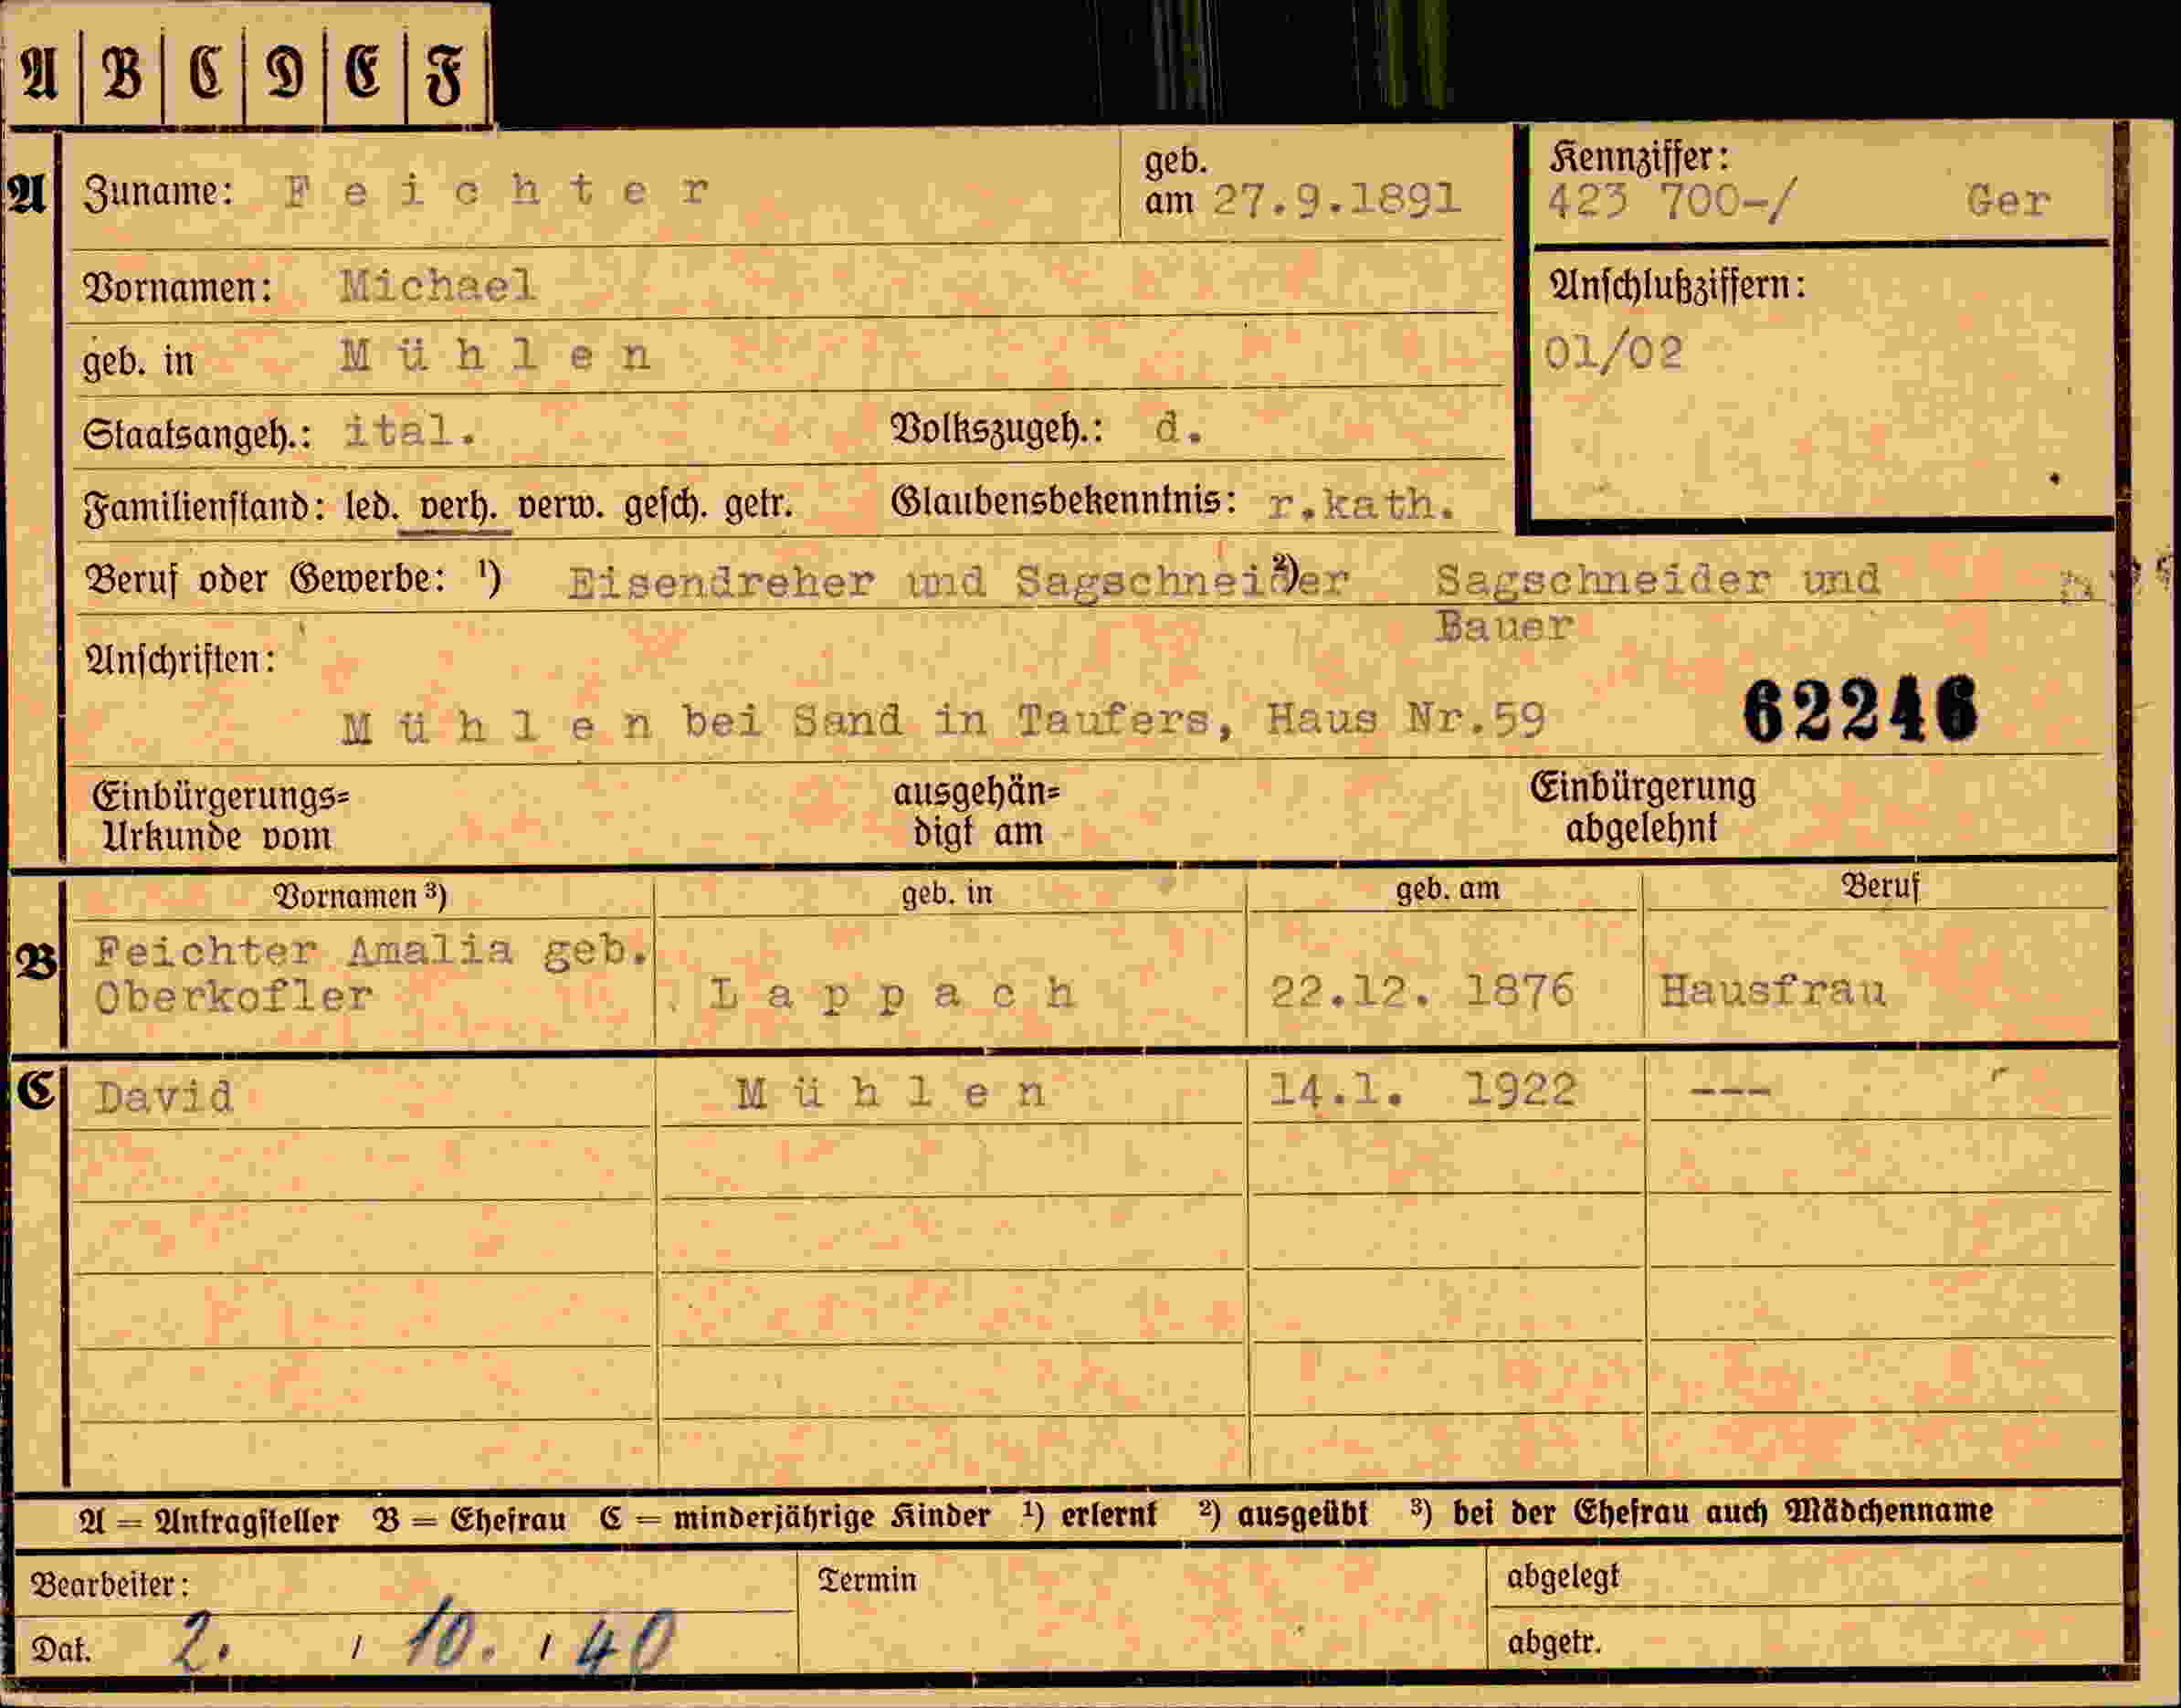 A B C D E F
A Zuname: Feichter geb. am 27.9.1891 Kennziffer: 423 700-/ Ger
Vornamen: Michael Anschlußziffern:
geb. in Mühlen 01/02
Staatsangeh.: ital. Volkszugeh.: d.
Familienstand: led. verh. verw. gesch. getr. Glaubensbekenntnis: r.kath.
Beruf oder Gewerbe: ¹) Eisendreher und Sagschneider ²) Sagschneider und
Bauer
Anschriften:
Mühlen bei Sand in Taufers, Haus Nr.59 62246
Einbürgerungs= ausgehän= Einbürgerung
Urkunde vom digt am abgelehnt
Vornamen ³) geb. in geb. am Beruf
B Feichter Amalia geb.
Oberkofler Lappach 22.12. 1876 Hausfrau
C David Mühlen 14.1. 1922 ---
A = Antragsteller B = Ehefrau C = minderjährige Kinder ¹) erlernt ²) ausgeübt ³) bei der Ehefrau auch Mädchenname
Bearbeiter: Termin abgelegt
Dat. 2. / 10. / 40 abgetr.